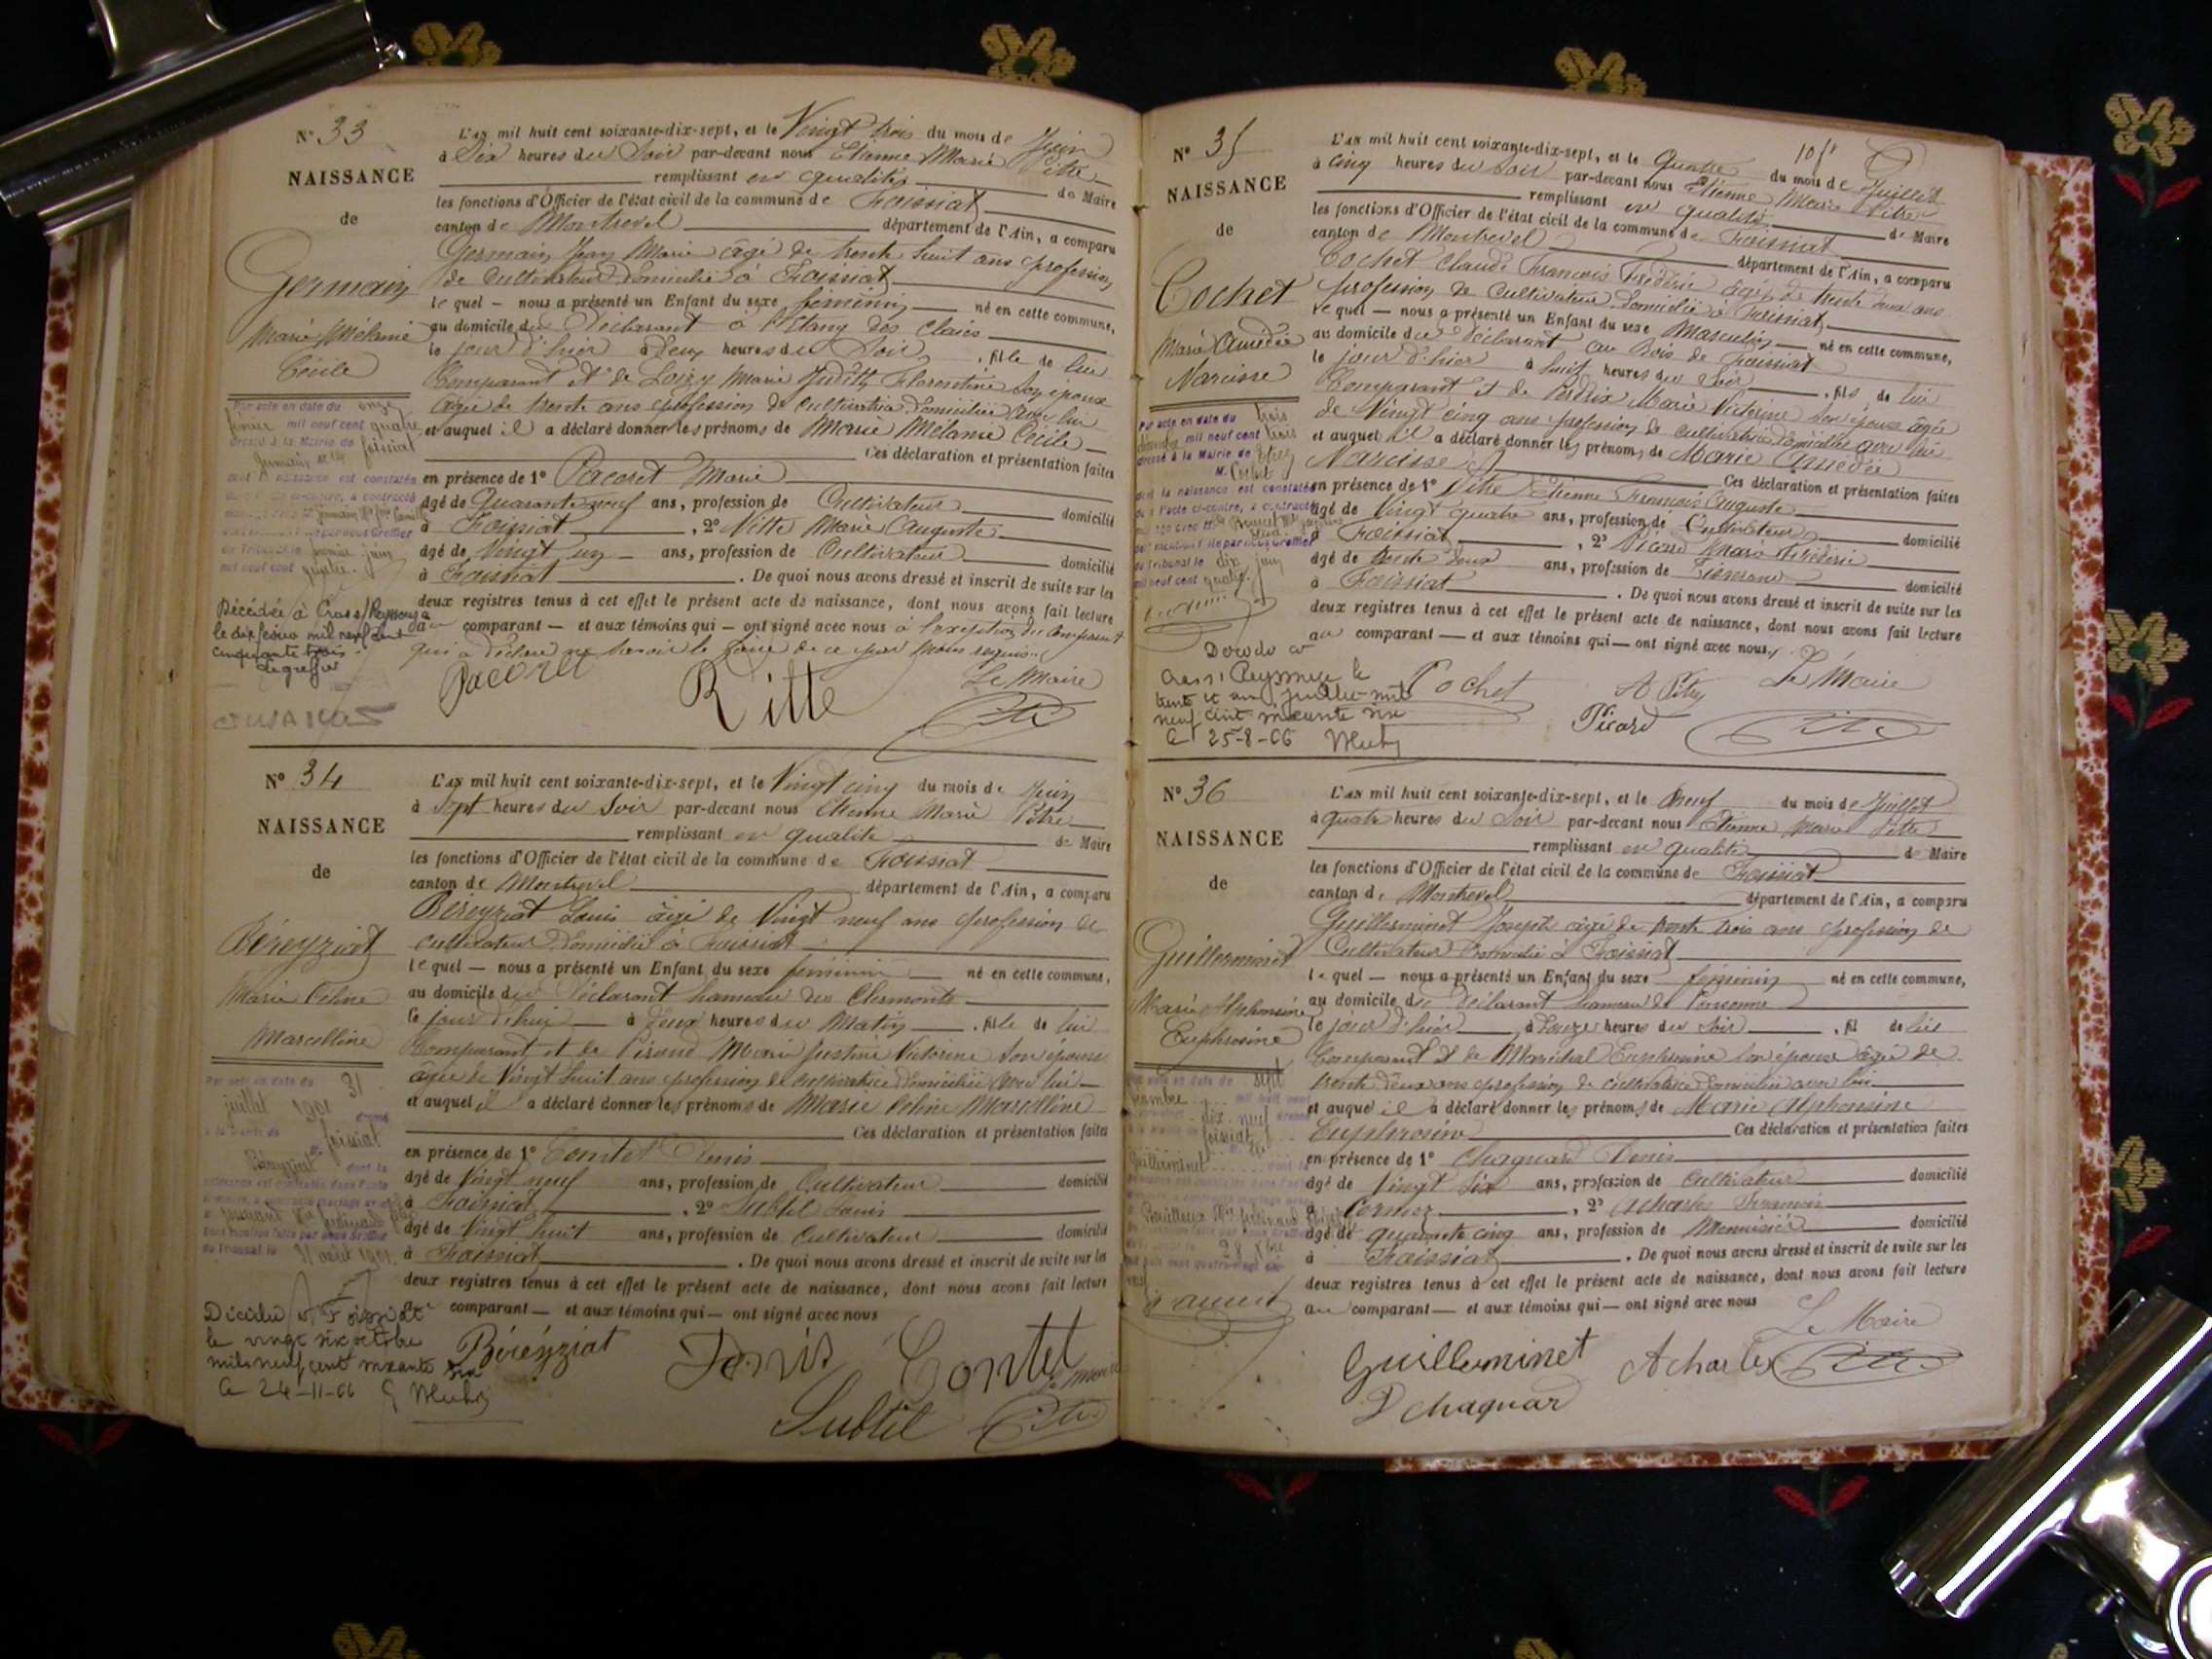 N° 33
NAISSANCE
de
Germain
Marie Mélanie
Cécile
Par acte en date du onze
février mil neuf cent quatre
dressé à la Mairie de foissiat
dont la naissance est constatée
mil neuf cent quatre
Décédée à Cras s/ Reyssouze
le dix février mil neuf cent
cinquante trois.
Le greffier
L'an mil huit cent soixante-dix-sept, et le Vingt trois du mois de Juin
à Six heures du Soir par-devant nous Etienne Marie Pitre
remplissant en qualité de Maire
les fonctions d'Officier de l'état civil de la commune de Foissiat
canton de Montrevel département de l'Ain, a comparu
Germain Jean Marie âgé de trente huit ans profession
de Cultivateur Domicilié à Foissiat
le quel — nous a présenté un Enfant du sexe féminin né en cette commune,
au domicile du Déclarant à l'Etang des Clais
le jour d'hier à Deux heures du Soir, fille de lui
Comparant et de Loizy Marie Judith Florentine Son épouse
âgée de trente ans profession de Cultivatrice Domiciliée avec lui
et auquel il a déclaré donner les prénoms de Marie Mélanie Cécile
Ces déclaration et présentation faites
en présence de 1° Pacoret Marie
âgé de Quarante neuf ans, profession de Cultivateur domicilié
à Foissiat, 2° Ritte Marie Auguste
âgé de Vingt un ans, profession de Cultivateur domicilié
à Foissiat. De quoi nous avons dressé et inscrit de suite sur les
deux registres tenus à cet effet le présent acte de naissance, dont nous avons fait lecture
au comparant — et aux témoins qui — ont signé avec nous à l'exception du Comparant
qui a déclaré ne savoir le faire de ce par nous requis.
Pacoret Ritte Le Maire
Pitre
N° 34
NAISSANCE
de
Béreyziat
Marie Céline
Marcelline
Par acte en date du 31
juillet 1901
à la Mairie de foissiat
Béreyziat
31 août 1901
Décédée à Foissiat
le vingt six octobre
mil neuf cent soixante six
le 24-11-66
L'an mil huit cent soixante-dix-sept, et le Vingt cinq du mois de Juin
à Sept heures du Soir par-devant nous Etienne Marie Pitre
remplissant en qualité de Maire
les fonctions d'Officier de l'état civil de la commune de Foissiat
canton de Montrevel département de l'Ain, a comparu
Béreyziat Louis âgé de Vingt neuf ans profession de
cultivateur Domicilié à Foissiat
le quel — nous a présenté un Enfant du sexe féminin — né en cette commune,
au domicile du Déclarant hameau des Clermonts
le jour d'hui — à Deux heures du Matin, fille de lui
Comparant et de Piroud Marie Justine Victorine Son épouse
âgée de Vingt huit ans profession de cultivatrice Domiciliée avec lui
et auquel il a déclaré donner les prénoms de Marie Céline Marcelline
Ces déclaration et présentation faites
en présence de 1° Contet Denis
âgé de Vingt neuf ans, profession de Cultivateur domicilié
à Foissiat, 2° Subtil Louis
âgé de Vingt huit ans, profession de Cultivateur domicilié
à Foissiat. De quoi nous avons dressé et inscrit de suite sur les
deux registres tenus à cet effet le présent acte de naissance, dont nous avons fait lecture
au comparant — et aux témoins qui — ont signé avec nous
Béréyziat Denis Contet
Le Maire
Subtil Pitre
N° 35
NAISSANCE
de
Cochet
Marie Amédée
Narcisse
Par acte en date du trois
mil neuf cent trois
dressé à la Mairie de
M. Cochet
dont la naissance est constatée
dans l'acte ci-contre, a contracté
du Tribunal le dix juin
mil neuf cent quatre.
Décédé à
Cras s/ Reyssouze le
trente et un juillet mil
neuf cent soixante six
le 25-8-66
L'an mil huit cent soixante-dix-sept, et le Quatre du mois de Juillet
à Cinq heures du Soir par-devant nous Etienne Marie Pitre
remplissant en qualité de Maire
les fonctions d'Officier de l'état civil de la commune de Foissiat
canton de Montrevel département de l'Ain, a comparu
Cochet Claude François Frédéric âgé de trente deux ans
profession de Cultivateur Domicilié à Foissiat
le quel — nous a présenté un Enfant du sexe Masculin — né en cette commune,
au domicile du Déclarant au Bois de Foissiat
le jour d'hier à huit heures du Soir, fils de lui
Comparant et de Perdrix Marie Victorine Son épouse âgée
de Vingt cinq ans profession de cultivatrice Domiciliée avec lui
et auquel il a déclaré donner les prénoms de Marie Amédée
Narcisse Ces déclaration et présentation faites
en présence de 1° Pitre Etienne François Auguste
âgé de Vingt quatre ans, profession de Cultivateur domicilié
à Foissiat, 2° Picard Marie Frédéric
âgé de trente deux ans, profession de domicilié
à Foissiat. De quoi nous avons dressé et inscrit de suite sur les
deux registres tenus à cet effet le présent acte de naissance, dont nous avons fait lecture
au comparant — et aux témoins qui — ont signé avec nous.
Cochet A Pitre Le Maire
Picard Pitre
N° 36
NAISSANCE
de
Guillerminet
Marie Alphonsine
Euphrosine
Par acte en date du sept
dix neuf
foissiat
Guillerminet
L'an mil huit cent soixante-dix-sept, et le Neuf du mois de Juillet
à quatre heures du Soir par-devant nous Etienne Marie Pitre
remplissant en qualité de Maire
les fonctions d'Officier de l'état civil de la commune de Foissiat
canton de Montrevel département de l'Ain, a comparu
Guillerminet Joseph âgé de trente trois ans profession de
Cultivateur Domicilié à Foissiat
le quel — nous a présenté un Enfant du sexe féminin né en cette commune,
au domicile du Déclarant hameau de
le jour d'hier à Douze heures du Soir, fil de lui
Comparant et de Maréchal Euphrosine Son épouse âgée de
trente deux ans profession de cultivatrice Domiciliée avec lui
et auquel il a déclaré donner les prénoms de Marie Alphonsine
Euphrosine Ces déclaration et présentation faites
en présence de 1° Chagnard Denis
âgé de Vingt Six ans, profession de Cultivateur domicilié
à Cormoz, 2° Acharles François
âgé de quarante cinq ans, profession de Menuisier domicilié
à Foissiat. De quoi nous avons dressé et inscrit de suite sur les
deux registres tenus à cet effet le présent acte de naissance, dont nous avons fait lecture
au comparant — et aux témoins qui — ont signé avec nous
Le Maire
Guillerminet Acharles Pitre
D Chagnard